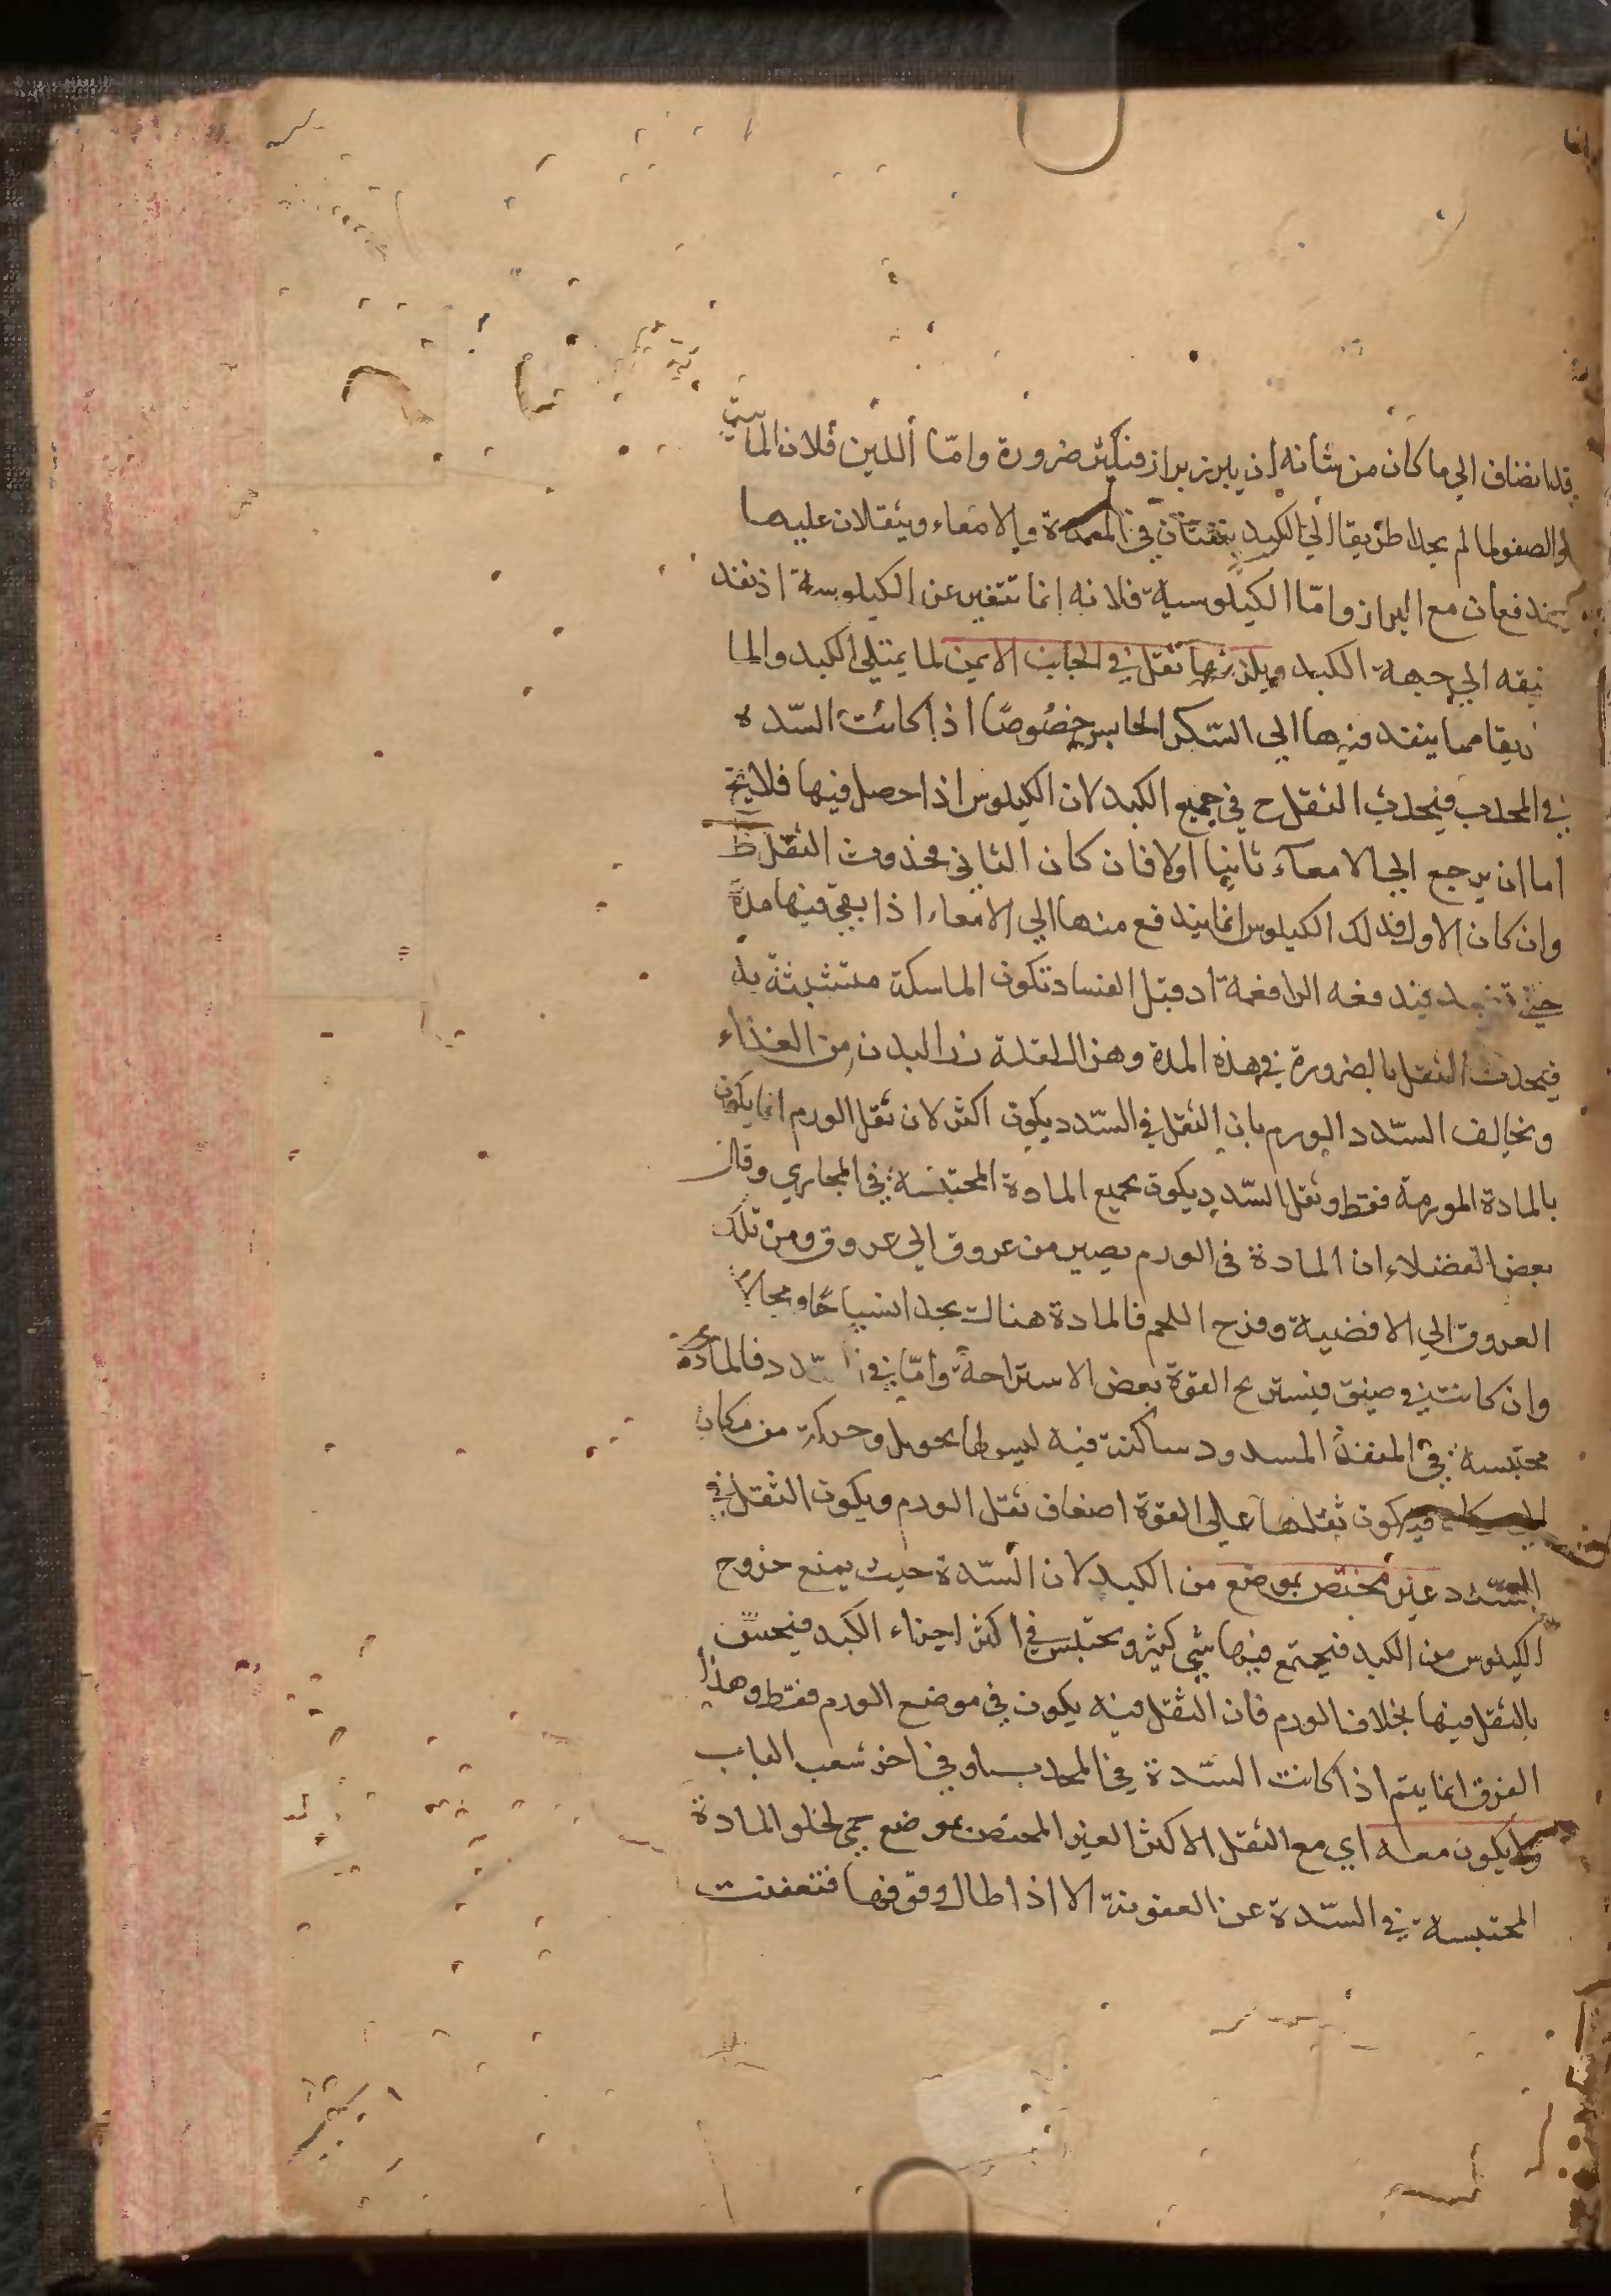 قد انضاف الي ما كان من شانه ان يبرز براز فيكثر ضرورة وامّا اللين فلان المائية
والصفو لما لم يجدا طريقا الي الكبد يبقيان في المعدة والامعاء ويثقلان عليها
فيندفعان مع البراز وامّا الكيلوسية فلانه انما تتغير عن الكيلوسية اذ نفذ
الي جهة الكبد ويلزمها ثقل في الجانب الايمن لما يمتلي الكبد والما
ريقا مما ينفذ فيها الي السكر الحابس خصُوصًا اذا كانت السّدة
في المحدب فيحدث الثقل ح في جميع الكبد لان الكيلوس اذا حصل فيها فلا يخ
اما ان يرجع الي الامعاء ثانيا اولا فان كان الثاني فحدوث الثقل ظ
وان كان الاول فذلك الكيلوس انما يندفع منها الي الامعاء اذا بقي فيها مدة
حتي فيدفعه الدافعة اذ قبل الفساد تكون الماسكة متشبثة به
فيحدث الثقل بالضرورة في هذه المدة وهزال لقلة البدن من الغذاء
ويخالف السّدد الورم بان الثقل في السّدد يكون اكثر لان ثقل الورم انما يكون
بالمادة المورمة فقط وثقل السّدد يكون بجميع المادة المحتبسة في المجاري وقال
بعض الفضلاء ان المادة في الورم يصير من عروق الي عروق ومن تلك
العروق الي الافضية وفرج اللحم فالمادة هناك يجد انسياحًا ومجالًا
وان كانت في ضيق فيستريح القوة بعض الاستراحة وامّا في السّدد فالمادة
محتبسة في المنفذ المسدود ساكنة فيه ليس لها تحويل وحركة من مكان
فيكون ثقلها علي القوة اضعاف ثقل الورم ويكون الثقل في
السّدد غير مختص بموضع من الكبد لان السّدة حيث يمنع خروج
الكيلوس من الكبد فيجتمع فيها شي كثير ويحتبس في اكثر اجزاء الكبد فيحس
بالثقل فيها بخلاف الورم فان الثقل فيه يكون في موضع الورم فقط وهذا
الفرق انما يتم اذا كانت السّدة في المحدب او في اخر شعب الباب
ولا يكون معه اي مع الثقل الاكثر الغير المختص بموضع حمي لخلو المادة
المحتبسة في السّدة عن العفونة الا اذا طال وقوفها فتعفنت